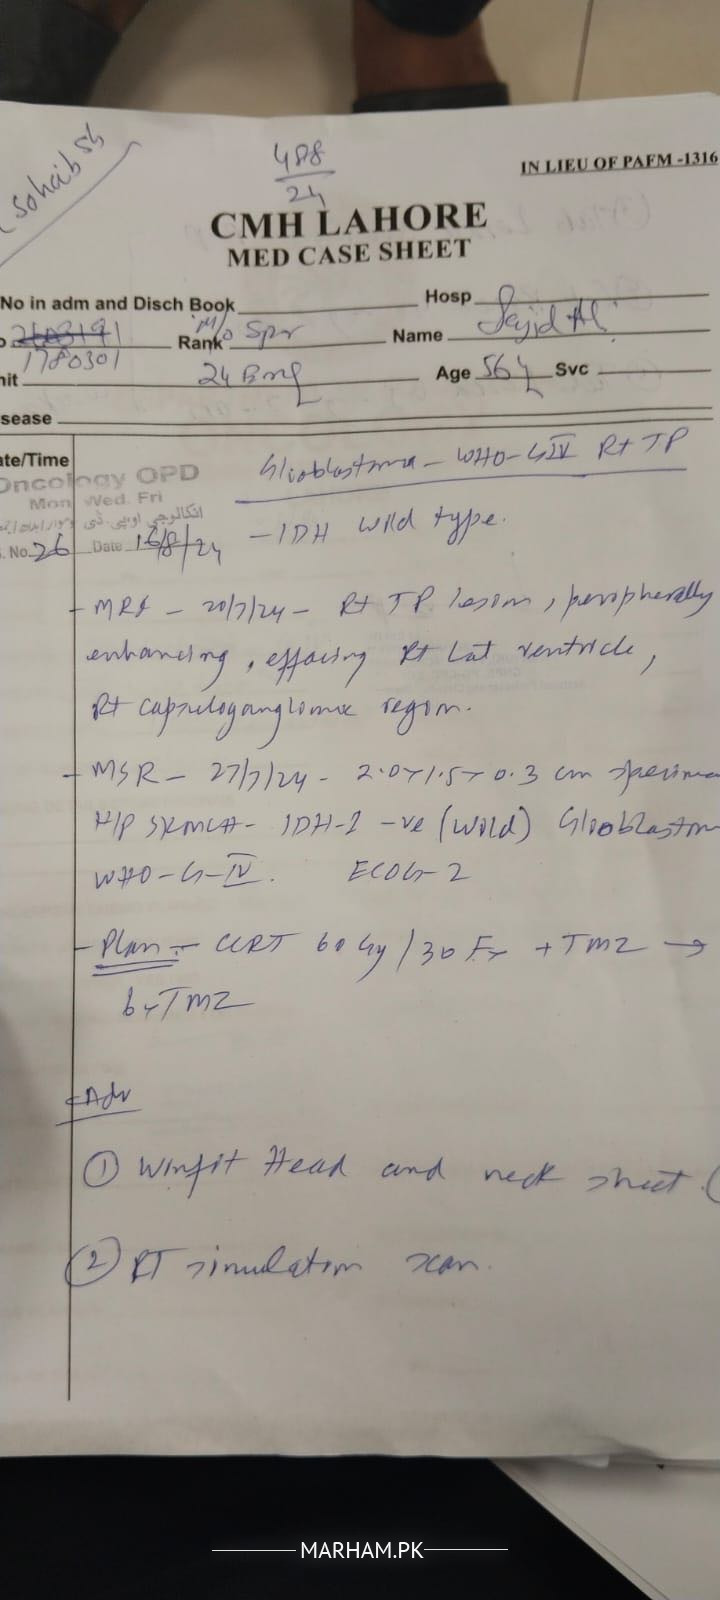 Sohaib Sb
488
24
IN LIEU OF PAFM -1316
CMH LAHORE
MED CASE SHEET
No in adm and Disch Book Hosp
1780301 Rank M/O Spr Name Sajid Ali
nit 24 Age 56 Y Svc
sease
ate/Time
Oncology OPD
Mon, Wed. Fri
. No. 26 Date 16/8/24
Glioblastoma - WHO-GIV Rt TP
- IDH wild type.
- MRI - 20/7/24 - Rt TP lesion, peripherally
enhancing, effacing Rt Lat ventricle,
Rt capsuloganglionic region.
- MSR - 27/7/24 - 2.0x1.5x0.3 cm specimen
H/P SKMCH - IDH-1 -ve (wild) Glioblastom
WHO-G-IV. ECOG-2
- Plan - CCRT 60 Gy/30 Fr + TMZ →
6xTMZ
Adv
① Winfit Head and neck sheet. (
② RT simulation scan.
MARHAM.PK